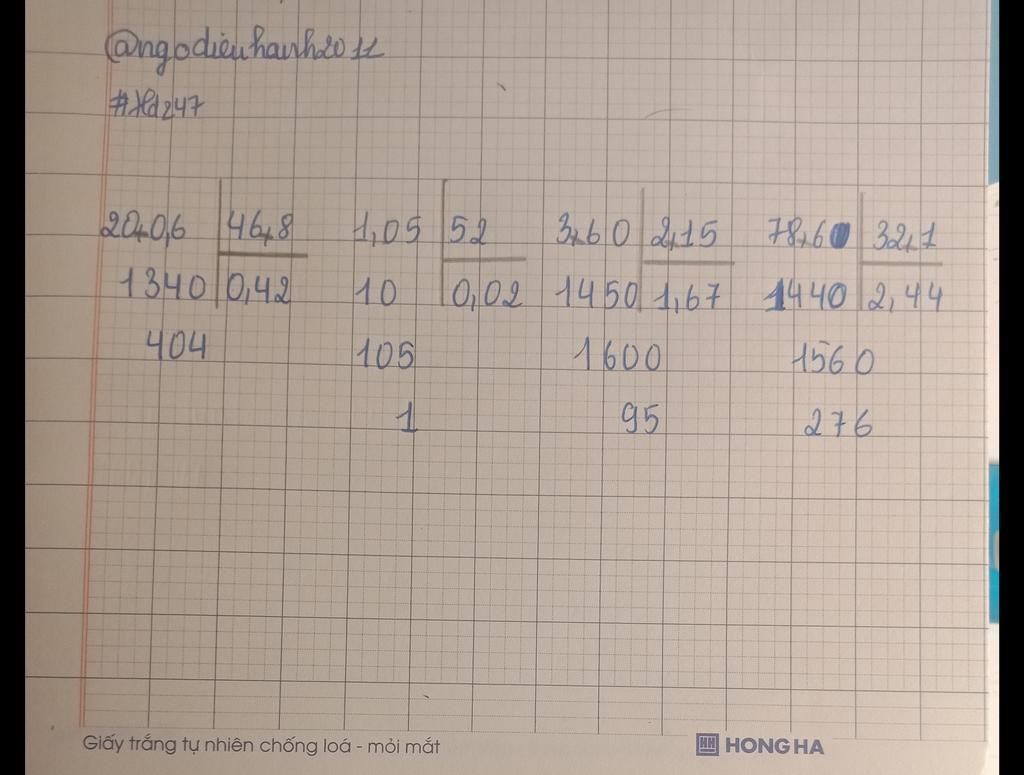 @ngodieuhanh2011
#Hd247
20,0,6 46,8 1,05 52 3,60 2,15 78,60 32,1
1340 0,42 10 0,02 1450 1,67 1440 2,44
404 105 1600 1560
1 95 276
Giấy trắng tự nhiên chống loá - mỏi mắt HH HONG HA